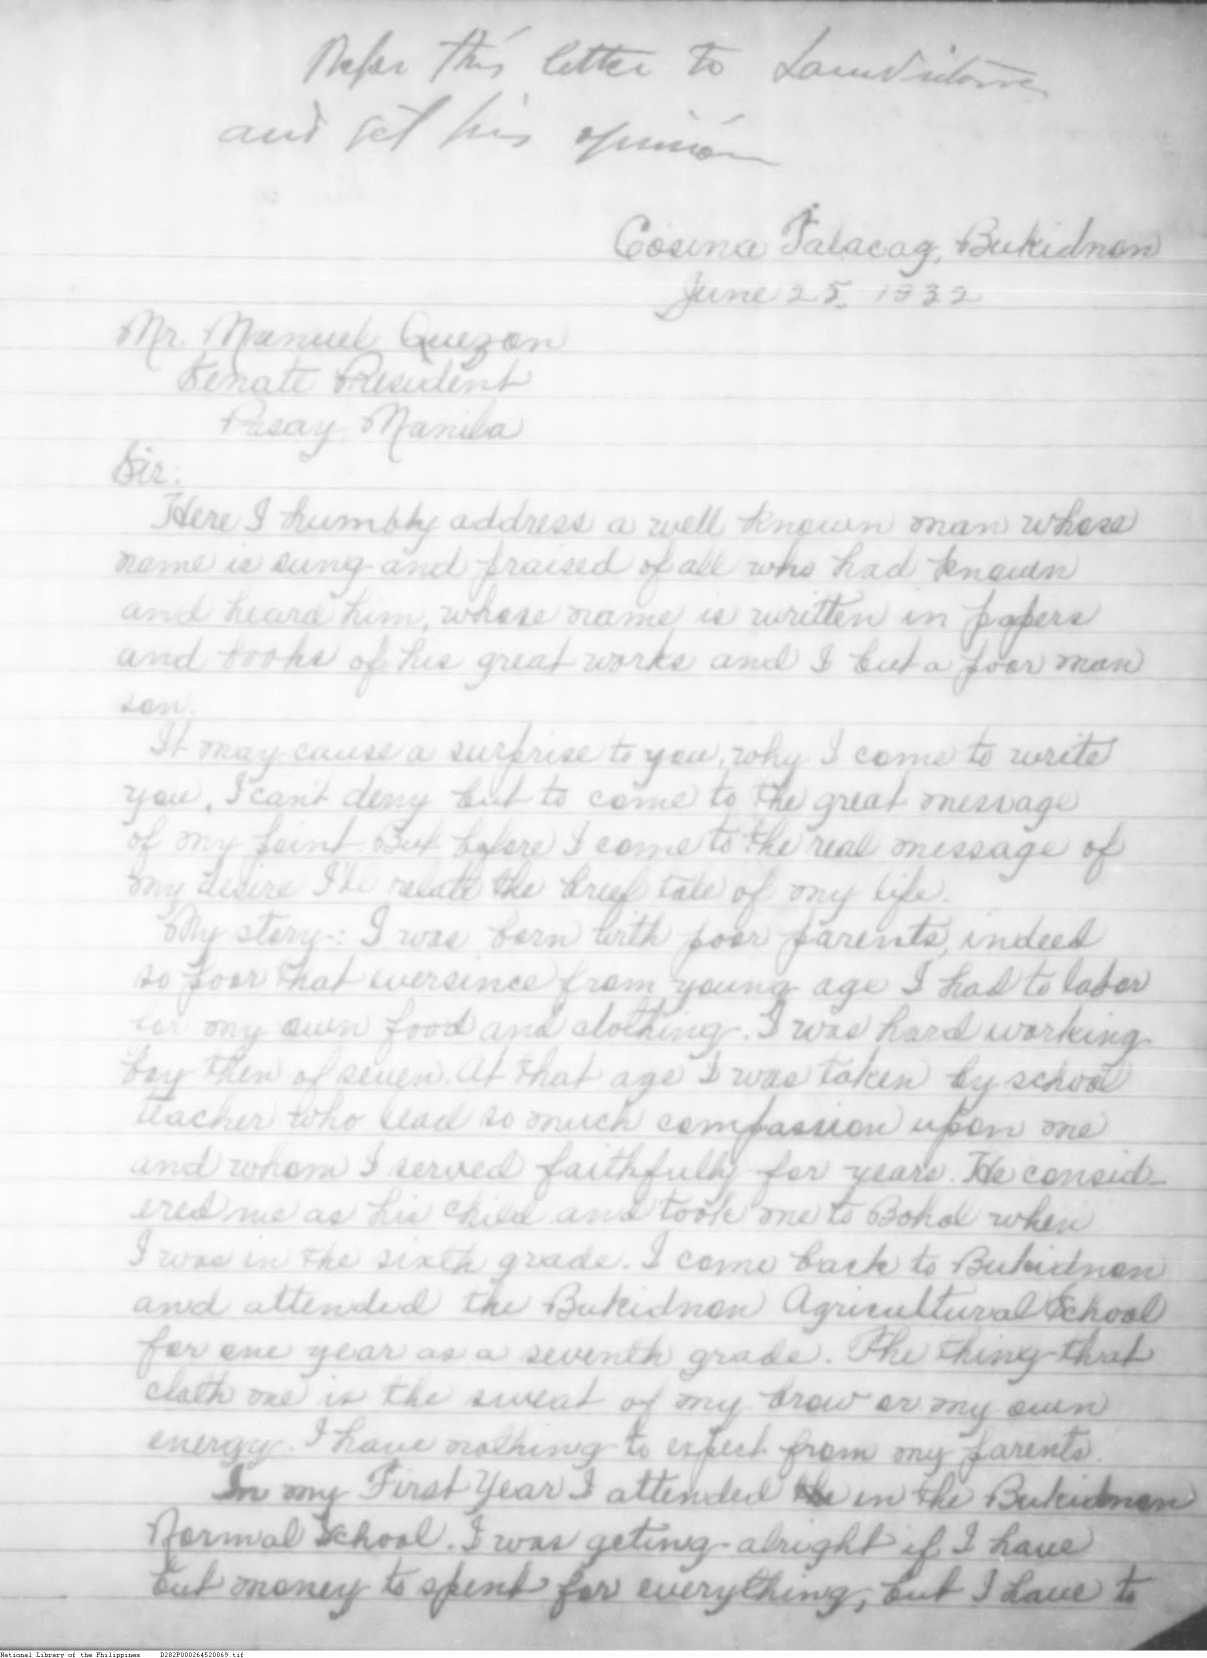 Refer this letter to
and get his opinion
Cosina Talacag, Bukidnon
June 25, 1932
Mr. Manuel Quezon
Senate President
Pasay Manila
Sir:
Here I humbly address a well known man whose
name is sung and praised of all who had known
and heard him, whose name is written in papers
and books of his great works and I but a poor man
son.
It may cause a surprise to you, why I come to write
you. I can't deny but to come to the great message
of my point. But before I come to the real message of
my desire I'll relate the brief tale of my life.
My story-: I was born with poor parents, indeed
so poor that eversince from young age I had to labor
for my own food and clothing. I was hard working
boy then of seven. At that age I was taken by school
teacher who had so much compassion upon me
and whom I served faithfully for years. He consid-
ered me as his child and took me to Bohol when
I was in the sixth grade. I come back to Bukidnon
and attended the Bukidnon Agricultural School
for one year as a seventh grade. The thing that
cloth me is the sweat of my brow or my own
energy. I have nothing to expect from my parents.
In my First Year I attended in the Bukidnon
Normal School. I was geting alright if I have
but money to spent for everything, but I have to
National Library of the Philippines D282P000264520069.tif